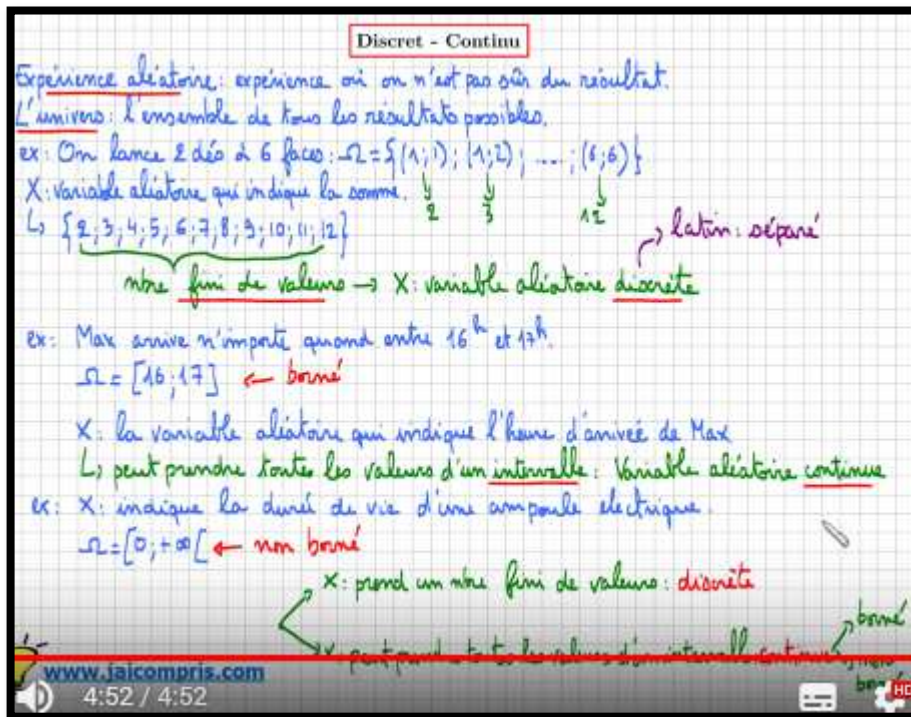 Discret - Continu
Expérience aléatoire : expérience où on n'est pas sûr du résultat.
L'univers : l'ensemble de tous les résultats possibles.
ex : On lance 2 dés à 6 faces : Ω = {(1;1) ; (1;2) ; .... ; (6;6)}
2 3 12
X : variable aléatoire qui indique la somme.
↳ {2;3;4;5;6;7;8;9;10;11;12}
latin : séparé
nbre fini de valeurs → X : variable aléatoire discrète
ex : Max arrive n'importe quand entre 16h et 17h.
Ω = [16;17] ← borné
X : la variable aléatoire qui indique l'heure d'arrivée de Max
↳ peut prendre toutes les valeurs d'un intervalle : Variable aléatoire continue
ex : X : indique la durée de vie d'une ampoule electrique.
Ω = [0;+∞[ ← non borné
X : prend un nbre fini de valeurs : discrète
borné
X : peut prendre ttes les valeurs d'un intervalle continue
non
borné
www.jaicompris.com
4:52 / 4:52
HD